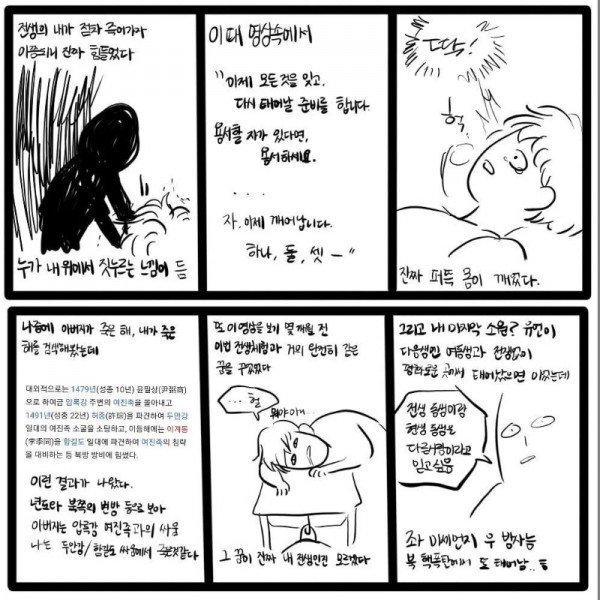 전생의 내가 점차 죽어가자
이쯤되니 진짜 힘들었다
누가 내 위에서 짓누르는 느낌이 듬
이 때 영상속에서
"이제 모든것을 잊고,
다시 태어날 준비를 합니다.
용서할 자가 있다면,
용서하세요.
. . .
자, 이제 깨어납니다.
하나, 둘, 셋 ー"
딱!
헉
진짜 퍼뜩 몸이 깨졌다.
나중에 아버지가 죽은 해, 내가 죽은
해를 검색해봤는데
대외적으로는 1479년(성종 10년) 윤필상(尹弼商)
으로 하여금 압록강 주변의 여진족을 몰아내고
1491년(성종 22년) 허종(許琮)을 파견하여 두만강
일대의 여진족 소굴을 소탕하고, 이듬해에는 이계동
(李季仝)을 함길도 일대에 파견하여 여진족의 침략
을 대비하는 등 북방 방비에 힘썼다.
이런 결과가 나왔다.
년도라 북쪽의 변방 등으로 보아
아버지는 압록강 여진족과의 싸움
나는 두만강/함길도 싸움에서 죽은것같다
또 이 영상을 보기 몇개월 전
이번 전생체험과 거의 완전히 같은
꿈을 꾸었었다
... 헐
뭐야 이거..
그 꿈이 진짜 내 전생인진 모르겠다
그리고 내 마지막 소원? 유언이
다음생엔 여동생과 전쟁없이
평화로운 곳에서 태어났으면 이었는데
전생 동생이랑
현생 동생은
다른사람이라고
믿고싶음
좌 미세먼지 우 방사능
북 핵폭탄에서 또 태어남..